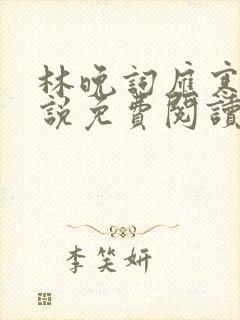 林晚詞雁寒
說免費閱讀
李笑妍